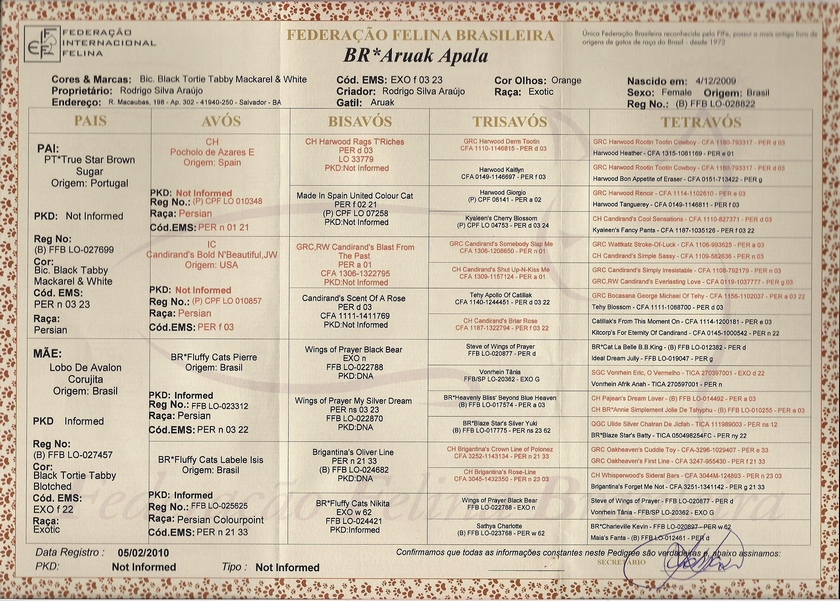 FEDERAÇÃO
INTERNACIONAL
FELINA
FEDERAÇÃO FELINA BRASILEIRA
BR*Aruak Apala
Única Federação Brasileira reconhecida pela FIFe, possui o mais antigo livro de
origens de gatos de raça do Brasil - desde 1972
Cores & Marcas: Bic. Black Tortie Tabby Mackarel & White
Proprietário: Rodrigo Silva Araújo
Endereço: R. Macaubas, 198 - Ap. 302 - 41940-250 - Salvador - BA
Cód. EMS: EXO f 03 23
Criador: Rodrigo Silva Araújo
Gatil: Aruak
Cor Olhos: Orange
Raça: Exotic
Nascido em: 4/12/2009
Sexo: Female Origem: Brasil
Reg No.: (B) FFB LO-028822
PAIS
AVÓS
BISAVÓS
TRISAVÓS
TETRAVÓS
PAI:
PT*True Star Brown
Sugar
Origem: Portugal
PKD: Not Informed
Reg No:
(B) FFB LO-027699
Cor:
Bic. Black Tabby
Mackarel & White
Cód. EMS:
PER n 03 23
Raça:
Persian
MÃE:
Lobo De Avalon
Corujita
Origem: Brasil
PKD Informed
Reg No:
(B) FFB LO-027457
Cor:
Black Tortie Tabby
Blotched
Cód. EMS:
EXO f 22
Raça:
Exotic
CH
Pocholo de Azares E
Origem: Spain
PKD: Not Informed
Reg No.: (P) CPF LO 010348
Raça: Persian
Cód.EMS: PER n 01 21
IC
Candirand's Bold N'Beautiful,JW
Origem: USA
PKD: Not Informed
Reg No.: (P) CPF LO 010857
Raça: Persian
Cód.EMS: PER f 03
BR*Fluffy Cats Pierre
Origem: Brasil
PKD: Informed
Reg No.: FFB LO-023312
Raça: Persian
Cód.EMS: PER n 03 22
BR*Fluffy Cats Labele Isis
Origem: Brasil
PKD: Informed
Reg No.: FFB LO-025625
Raça: Persian Colourpoint
Cód.EMS: PER n 21 33
CH Harwood Rags T'Riches
PER d 03
LO 33779
PKD:Not Informed
Made In Spain United Colour Cat
PER f 02 21
(P) CPF LO 07258
PKD:Not Informed
GRC,RW Candirand's Blast From
The Past
PER a 01
CFA 1306-1322795
PKD:Not Informed
Candirand's Scent Of A Rose
PER d 03
CFA 1111-1411769
PKD:Not Informed
Wings of Prayer Black Bear
EXO n
FFB LO-022788
PKD:DNA
Wings of Prayer My Silver Dream
PER ns 03 23
FFB LO-022870
PKD:DNA
Brigantina's Oliver Line
PER n 21 33
(B) FFB LO-024682
PKD:DNA
BR*Fluffy Cats Nikita
EXO w 62
FFB LO-024421
PKD:Informed
GRC Harwood Derm Tootin
CFA 1110-1146815 - PER d 03
Harwood Kaitlyn
CFA 0149-1146697 - PER f 03
Harwood Giorgio
(P) CPF 06141 - PER a 02
Kyaleen's Cherry Blossom
(P) CPF LO 04753 - PER d 03 24
GRC Candirand's Somebody Slap Me
CFA 1306-1208650 - PER n 01
CH Candirand's Shut Up-N-Kiss Me
CFA 1309-1157124 - PER a 01
Tehy Apollo Of Catillak
CFA 1140-1244451 - PER d 03 22
CH Candirand's Briar Rose
CFA 1187-1322794 - PER f 03 22
Steve of Wings of Prayer
FFB LO-020877 - PER d
Vonrhein Tânia
FFB/SP LO-20362 - EXO G
BR*Heavenly Bliss' Beyond Blue Heaven
(B) FFB LO-017574 - PER a 03
BR*Blaze Star's Silver Yuki
(B) FFB LO-017775 - PER ns 23 62
CH Brigantina's Crown Line of Polonez
CFA 3252-1143134 - PER n 21 33
CH Brigantina's Rose-Line
CFA 3045-1432350 - PER n 23 03
Wings of Prayer Black Bear
FFB LO-022788 - EXO n
Sathya Charlotte
(B) FFB LO-023768 - PER w 62
GRC Harwood Rootin Tootin Cowboy - CFA 1180-793317 - PER d 03
Harwood Heather - CFA 1315-1081169 - PER e 01
GRC Harwood Rootin Tootin Cowboy - CFA 1180-793317 - PER d 03
Harwood Bon Appetite of Eraser - CFA 0151-713422 - PER g
GRC Harwood Renoir - CFA 1114-1102610 - PER e 03
Harwood Tanguerey - CFA 0149-1146811 - PER f 03
CH Candirand's Cool Sensations - CFA 1110-827371 - PER d 03
Kyaleen's Fancy Pants - CFA 1187-1035126 - PER f 03 22
GRC Wattkatz Stroke-Of-Luck - CFA 1106-993625 - PER a 03
CH Candirand's Simple Sassy - CFA 1109-582636 - PER n 03
GRC Candirand's Simply Irresistable - CFA 1108-792179 - PER e 03
GRC,RW Candirand's Everlasting Love - CFA 0119-1037777 - PER g 03
GRC Bocassana George Michael Of Tehy - CFA 1156-1102037 - PER d 03 22
Tehy Blossom - CFA 1111-1068700 - PER d 03
Catillak's From This Moment On - CFA 1114-1200181 - PER e 03
Kitcorp's For Eternity Of Candirand - CFA 0145-1000542 - PER n 22
BR*Cat La Belle B.B.King - (B) FFB LO-012382 - PER d
Ideal Dream Jully - FFB LO-019047 - PER g
SGC Vonrhein Eric, O Vermelho - TICA 270397001 - EXO d 22
Vonrhein Afrik Anah - TICA 270597001 - PER n
CH Pajean's Dream Lover - (B) FFB LO-014492 - PER d 03
CH BR*Annie Simplement Jolie De Tshyphu - (B) FFB LO-010255 - PER a 03
QGC Ulide Silver Chatran De Jicfah - TICA 111989003 - PER ns 12
BR*Blaze Star's Batty - TICA 050498254FC - PER ny 22
GRC Oakheaven's Cuddle Toy - CFA-3296-1029407 - PER e 33
GRC Oakheaven's First Line - CFA 3247-955430 - PER f 21 33
CH Whisperwood's Sideral Bars - CFA 3044M-124893 - PER n 23 03
Brigantina's Forget Me Not - CFA 3251-1341142 - PER g 21 33
Steve of Wings of Prayer - FFB LO-020877 - PER d
Vonrhein Tânia - FFB/SP LO-20362 - EXO G
BR*Charleville Kevin - FFB LO-020897 - PER w 62
Maia's Fanta - (B) FFB LO-012461 - PER d
Federação Felina Brasileira
Data Registro : 05/02/2010
PKD: Not Informed Tipo : Not Informed
Confirmamos que todas as informações constantes neste Pedigree são verdadeiras e, abaixo assinamos:
SECRETÁRIO